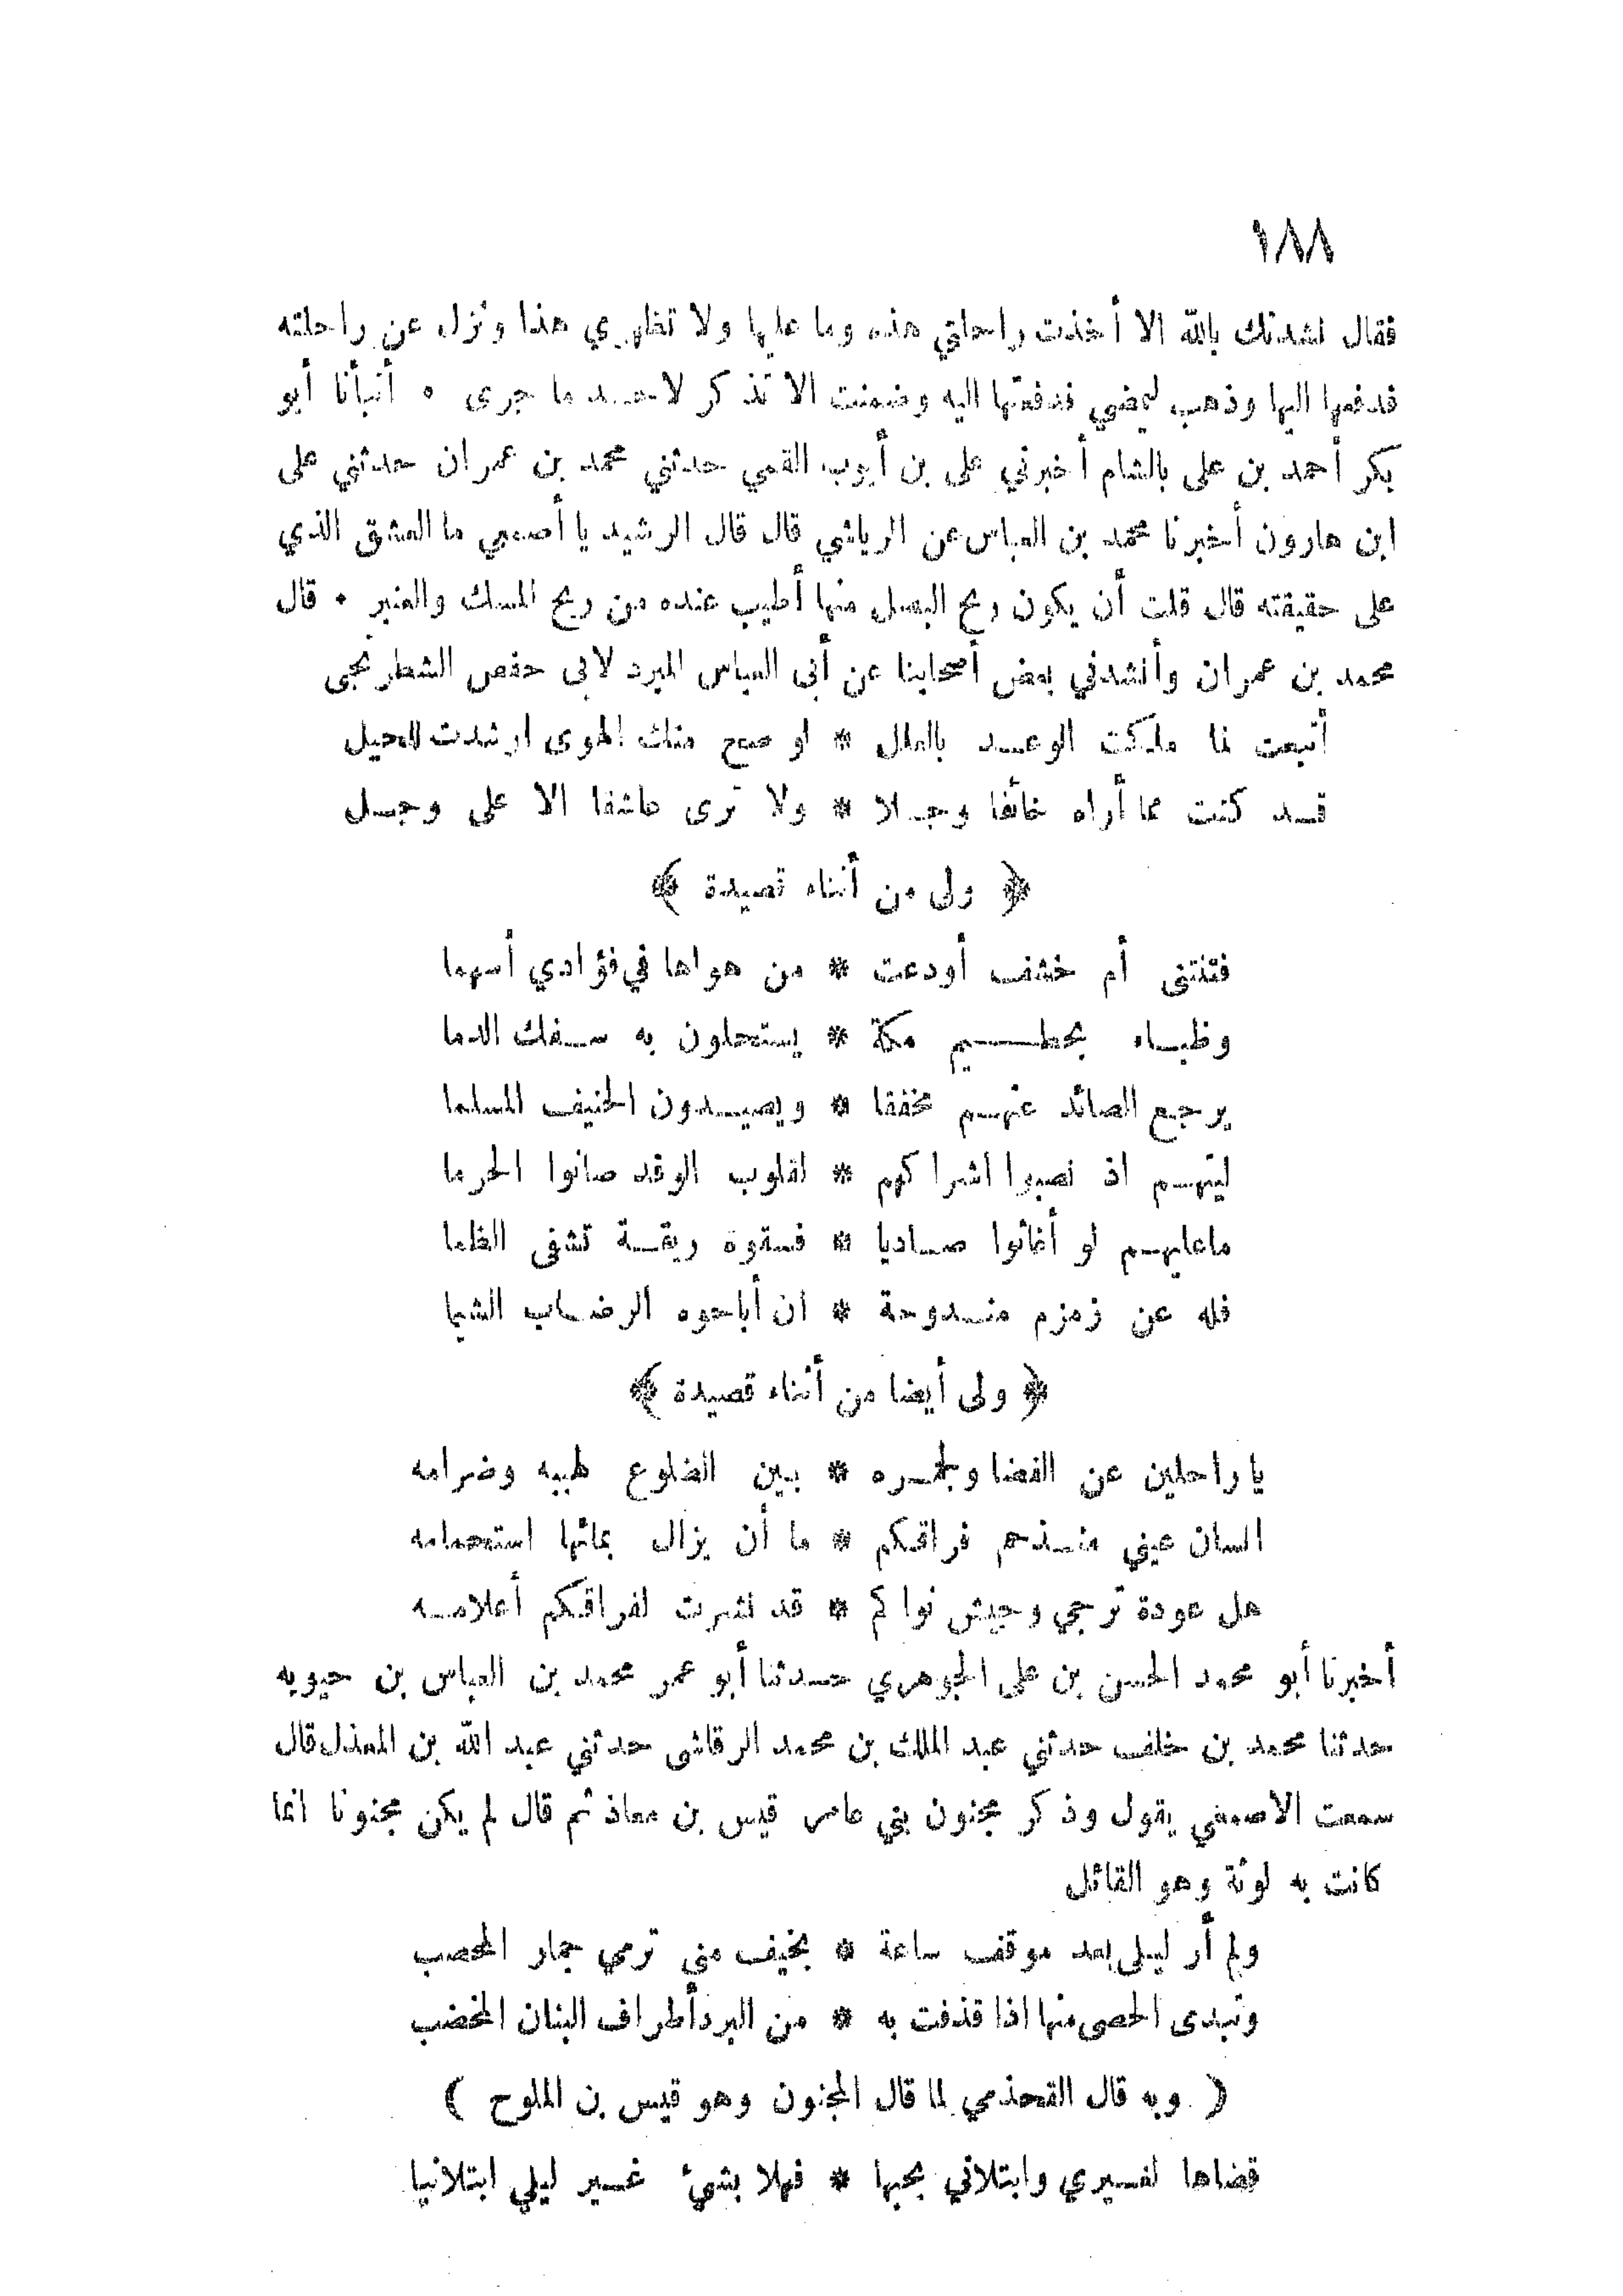 ١٨٨
فقال نشدتك بالله الا أخذت راحلتي هذه وما عليها ولا تظهري هذا ونزل عن راحلته
فدفعها اليها وذهب ليمضي فدفعتها اليه وضمنت الا تذكر لاحد ما جرى • أنبأنا أبو
بكر أحمد بن على بالشام أخبرني على بن أيوب القمي حدثني محمد بن عمران حدثني على
ابن هارون أخبرنا محمد بن العباس عن الرياشي قال قال الرشيد يا أصمعي ما العشق الذي
على حقيقته قال قلت أن يكون ريح البصل منها أطيب عنده من ريح المسك والعنبر • قال
محمد بن عمران وأنشدني بعض أصحابنا عن أبى العباس المبرد لابى حفص الشطرنجى
أتبعت لما ملكت الوعد بالعلل * لو صح منك الهوى ارشدت للحيل
قد كنت مما أراه خائفا وجلا * ولا ترى عاشقا الا على وجل
﴿ ولى من أثناء قصيدة ﴾
فتنتنى أم خشف أودعت * من هواها في فؤادي أسهما
وظباء بحطيم مكة * يستحلون به سفك الدما
يرجع الصائد عنهم مخفقا * ويصيدون الحنيف المسلما
ليتهم اذ نصبوا اشراكهم * لقلوب الوفد صانوا الحرما
ما عليهم لو أغاثوا صاديا * فسقوه ريقة تشفى الظما
فله عن زمزم مندوحة * ان أباحوه الرضاب الشبما
﴿ ولى أيضا من أثناء قصيدة ﴾
يا راحلين عن الغضا ولجمره * بين الضلوع لهيبه وضرامه
انسان عيني منذ حم فراقكم * ما أن يزال بمائها استحمامه
هل عودة ترجي وجيش نواكم * قد نشرت لفراقكم أعلامه
أخبرنا أبو محمد الحسن بن على الجوهري حدثنا أبو عمر محمد بن العباس بن حيويه
حدثنا محمد بن خلف حدثني عبد الملك بن محمد الرقاشى حدثني عبد الله بن المعذل قال
سمعت الاصمعي يقول وذكر مجنون بني عامر قيس بن معاذ ثم قال لم يكن مجنونا انما
كانت به لوثة وهو القائل
ولم أر ليلى بعد موقف ساعة * بخيف منى ترمي جمار المحصب
وتبدى الحصى منها اذا قذفت به * من البرد أطراف البنان المخضب
( وبه قال القحذمي لما قال المجنون وهو قيس بن الملوح )
قضاها لغيري وابتلاني بحبها * فهلا بشئ غير ليلي ابتلانيا